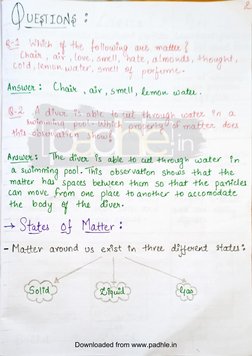 2
QUESTIONS :
Q-1 Which of the following are matter?
Chair, air, love, smell, hate, almonds, thought,
cold, lemon water, smell of perfume.
Answer : Chair, air, smell, lemon water.
Q-2 A diver is able to cut through water in a
swimming pool. Which property of matter does
this observation show?
padhle.in
Answer : The diver is able to cut through water in
a swimming pool. This observation shows that the
matter has spaces between them so that the particles
can move from one place to another to accomodate
the body of the diver.
→ States of Matter :
- Matter around us exist in three different states:
Solid Liquid Gas
Downloaded from www.padhle.in